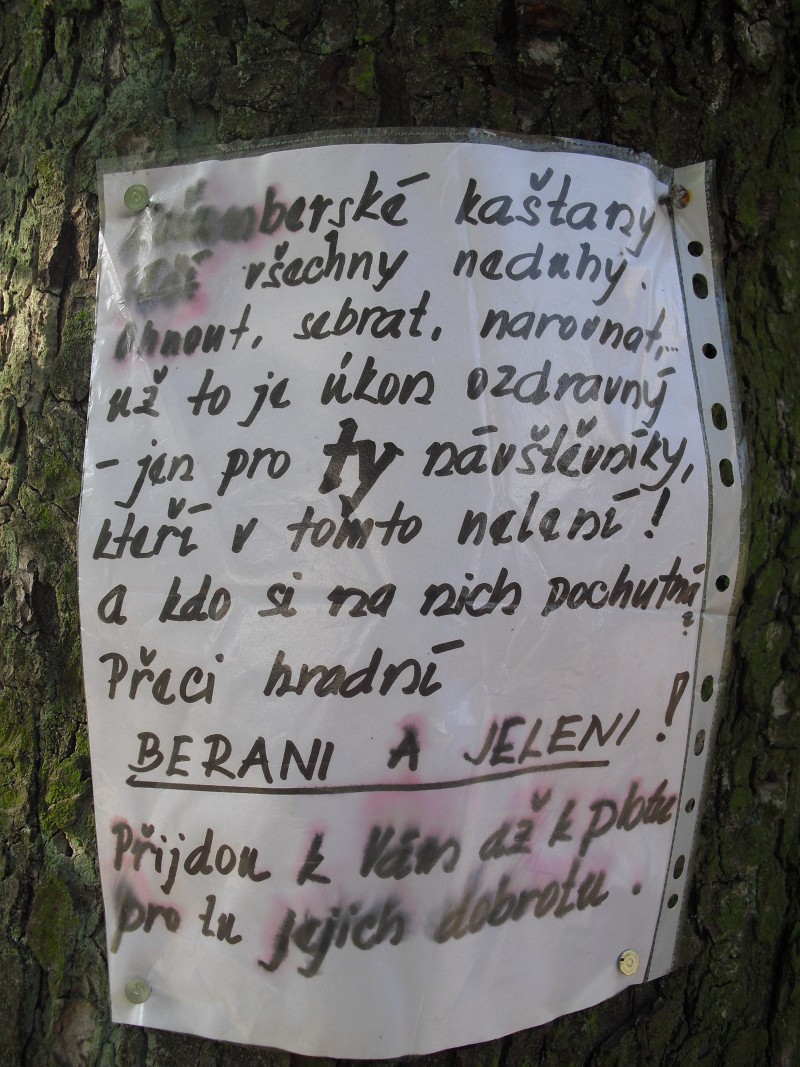 kaštany
všechny neduhy.
Ohnout, sebrat, narovnat,...
už to je úkon ozdravný
- jen pro ty návštěvníky,
kteří v tomto nelení!
a kdo si na nich pochutná?
Přeci hradní
BERANI A JELENI!
Přijdou k Vám až k plotu
pro tu jejich dobrotu.